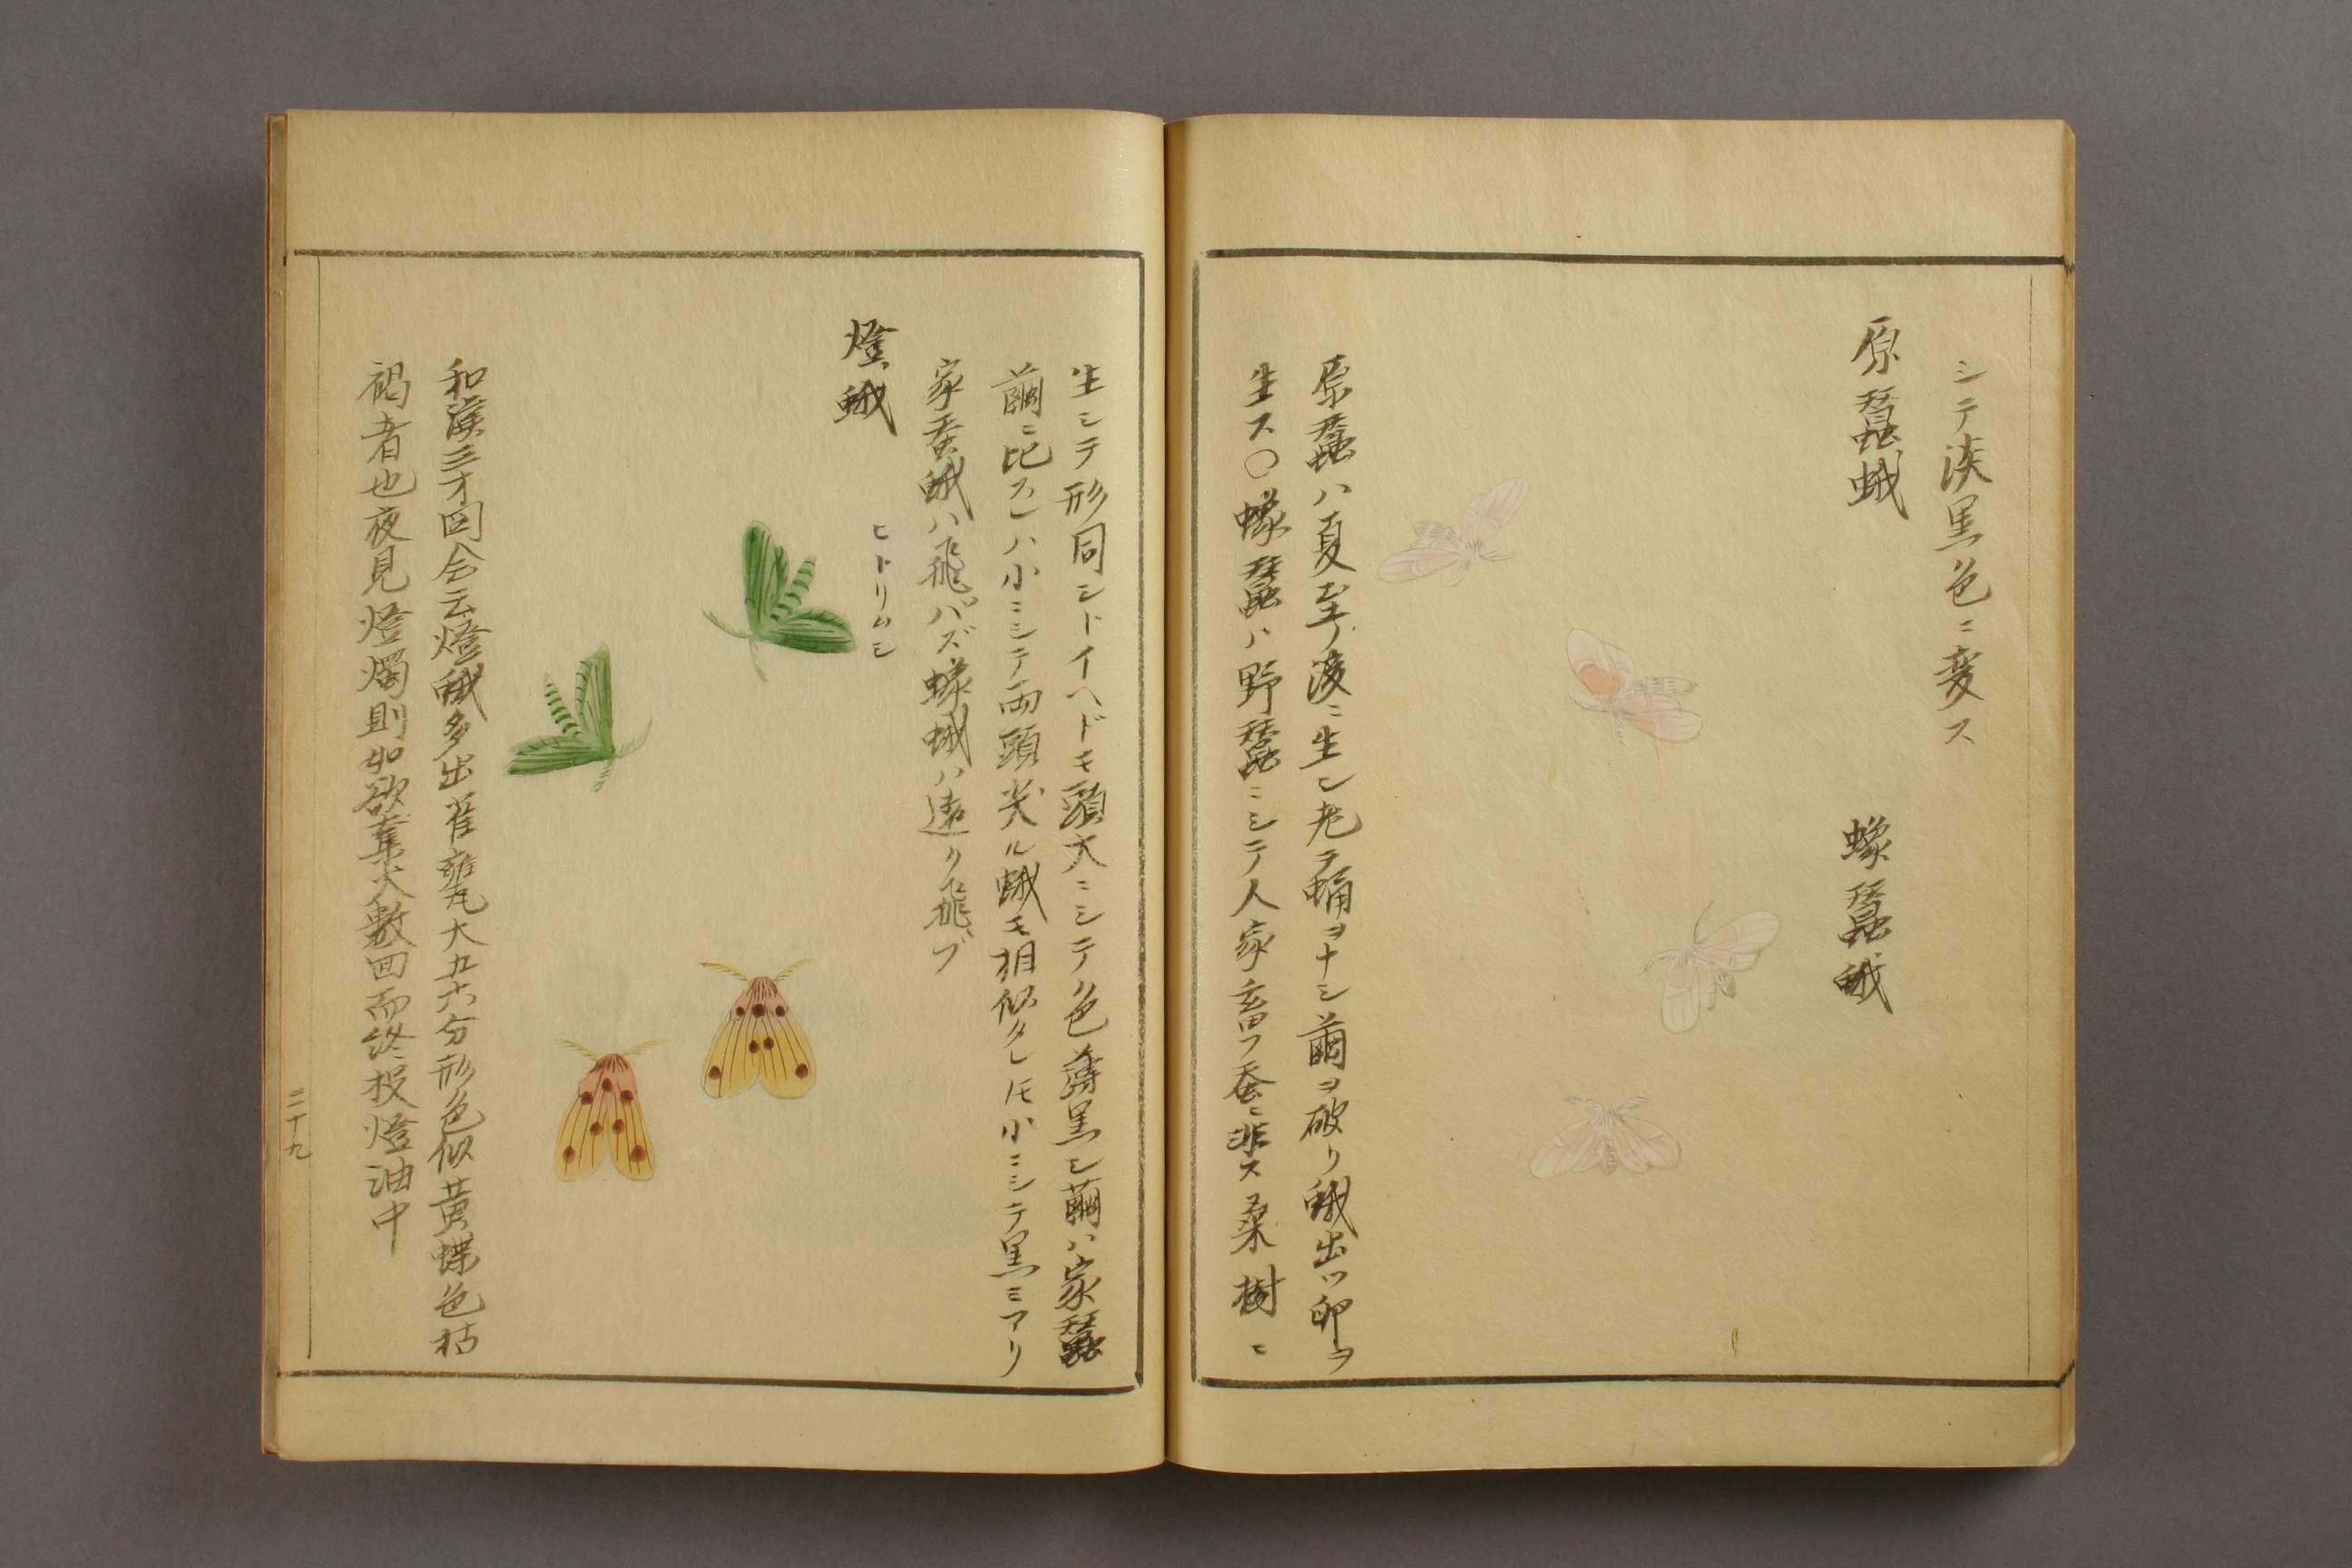 シテ淡黒色ニ変ス
原蠶蛾
蟓蠶蛾
原蠶ハ夏至ノ後ニ生シ老テ蛹ヲナシ繭ヲ破リ蛾出ツ卵ヲ
生ス〇蟓蠶ハ野蠶ニシテ人家畜フ蚕ニ非ス桑樹ニ
生シテ形同シトイヘドモ頭大ニシテ色薄黒シ繭ハ家蠶
繭ニ比スレハ小ニシテ両頭尖ル蛾モ相似タレ𪜈小ニシテ黒ミアリ
家蚕蛾ハ飛バズ蟓蛾ハ遠ク飛ブ
燈蛾
ヒトリムシ
和漢三才図会云燈蛾多出雀甕大五六分形色似黄蝶色枯
褐者也夜見燈燭則如欲奪火数回而終投燈油中
二十九